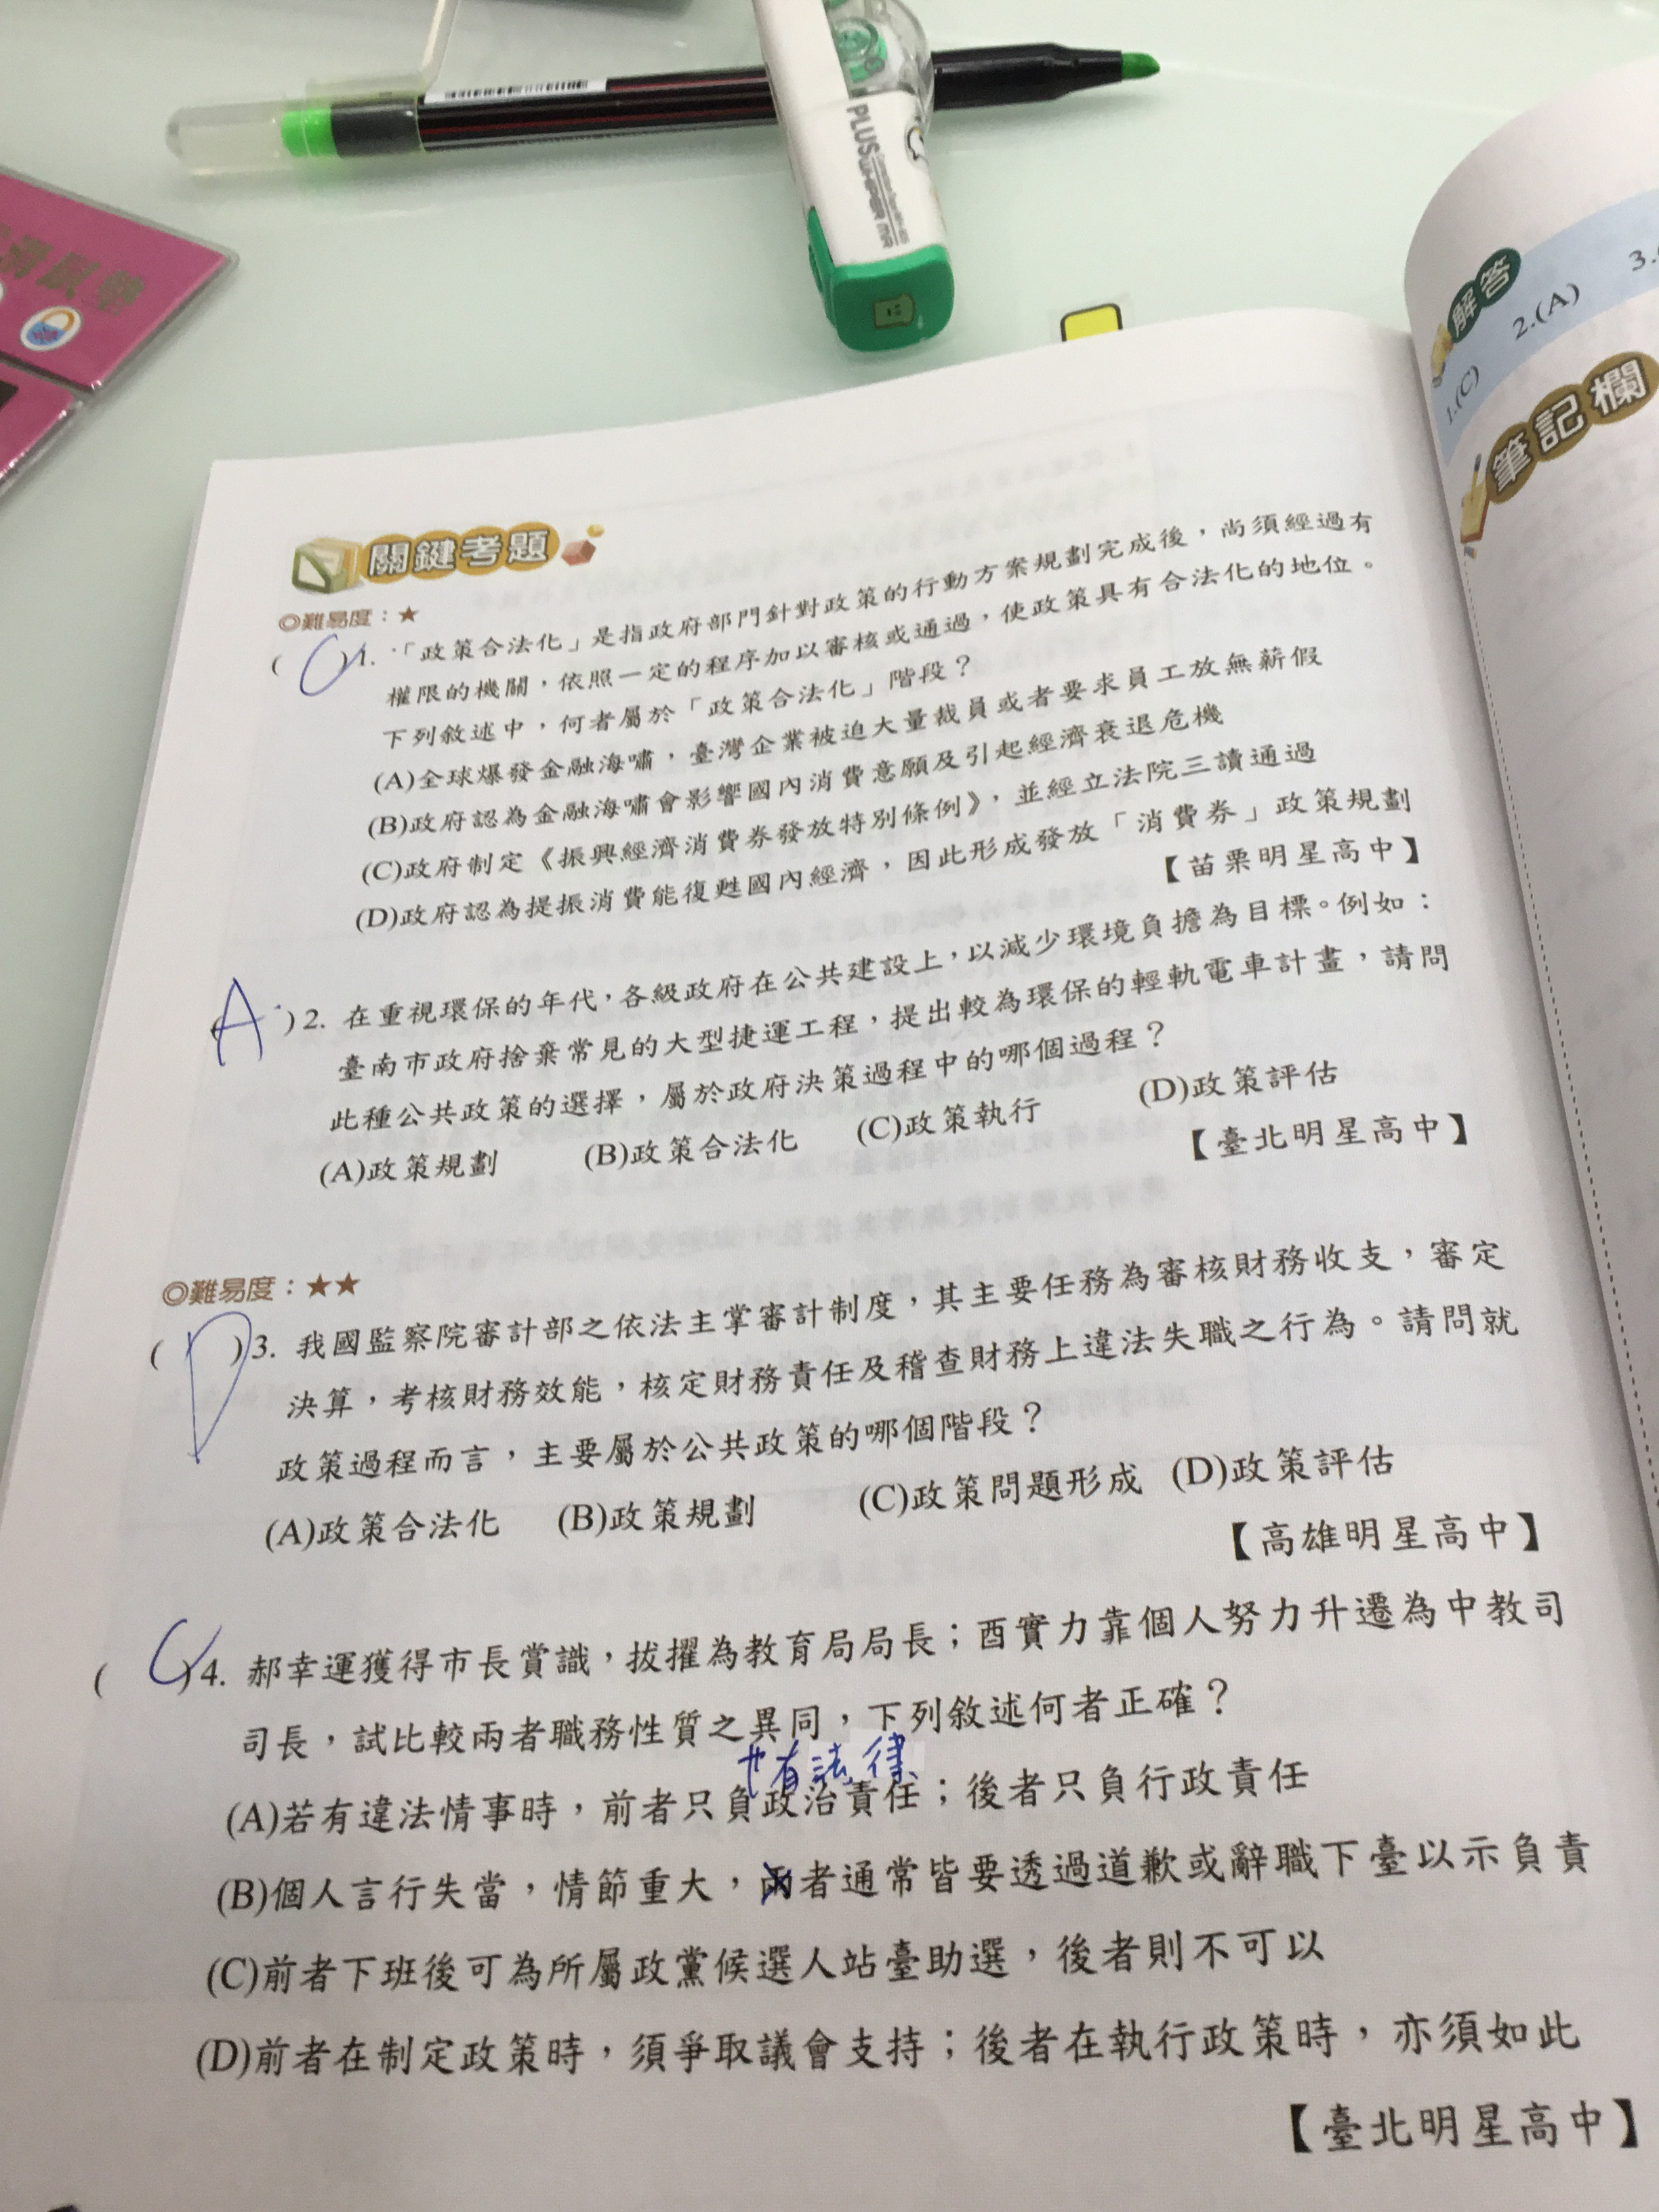 PLUS
WHIPER MR
滑鼠墊
解答
1.(C) 2.(A) 3.
筆記欄
關鍵考題
◎難易度：★
( C )1. 「政策合法化」是指政府部門針對政策的行動方案規劃完成後，尚須經過有
權限的機關，依照一定的程序加以審核或通過，使政策具有合法化的地位。
下列敘述中，何者屬於「政策合法化」階段？
(A)全球爆發金融海嘯，臺灣企業被迫大量裁員或者要求員工放無薪假
(B)政府認為金融海嘯會影響國內消費意願及引起經濟衰退危機
(C)政府制定《振興經濟消費券發放特別條例》，並經立法院三讀通過
(D)政府認為提振消費能復甦國內經濟，因此形成發放「消費券」政策規劃
【苗栗明星高中】
( A )2. 在重視環保的年代，各級政府在公共建設上，以減少環境負擔為目標。例如：
臺南市政府捨棄常見的大型捷運工程，提出較為環保的輕軌電車計畫，請問
此種公共政策的選擇，屬於政府決策過程中的哪個過程？
(A)政策規劃 (B)政策合法化 (C)政策執行 (D)政策評估
【臺北明星高中】
◎難易度：★★
( D )3. 我國監察院審計部之依法主掌審計制度，其主要任務為審核財務收支，審定
決算，考核財務效能，核定財務責任及稽查財務上違法失職之行為。請問就
政策過程而言，主要屬於公共政策的哪個階段？
(A)政策合法化 (B)政策規劃 (C)政策問題形成 (D)政策評估
【高雄明星高中】
( C )4. 郝幸運獲得市長賞識，拔擢為教育局局長；酉實力靠個人努力升遷為中教司
司長，試比較兩者職務性質之異同，下列敘述何者正確？
也有法律
(A)若有違法情事時，前者只負政治責任；後者只負行政責任
(B)個人言行失當，情節重大，兩者通常皆要透過道歉或辭職下臺以示負責
(C)前者下班後可為所屬政黨候選人站臺助選，後者則不可以
(D)前者在制定政策時，須爭取議會支持；後者在執行政策時，亦須如此
【臺北明星高中】